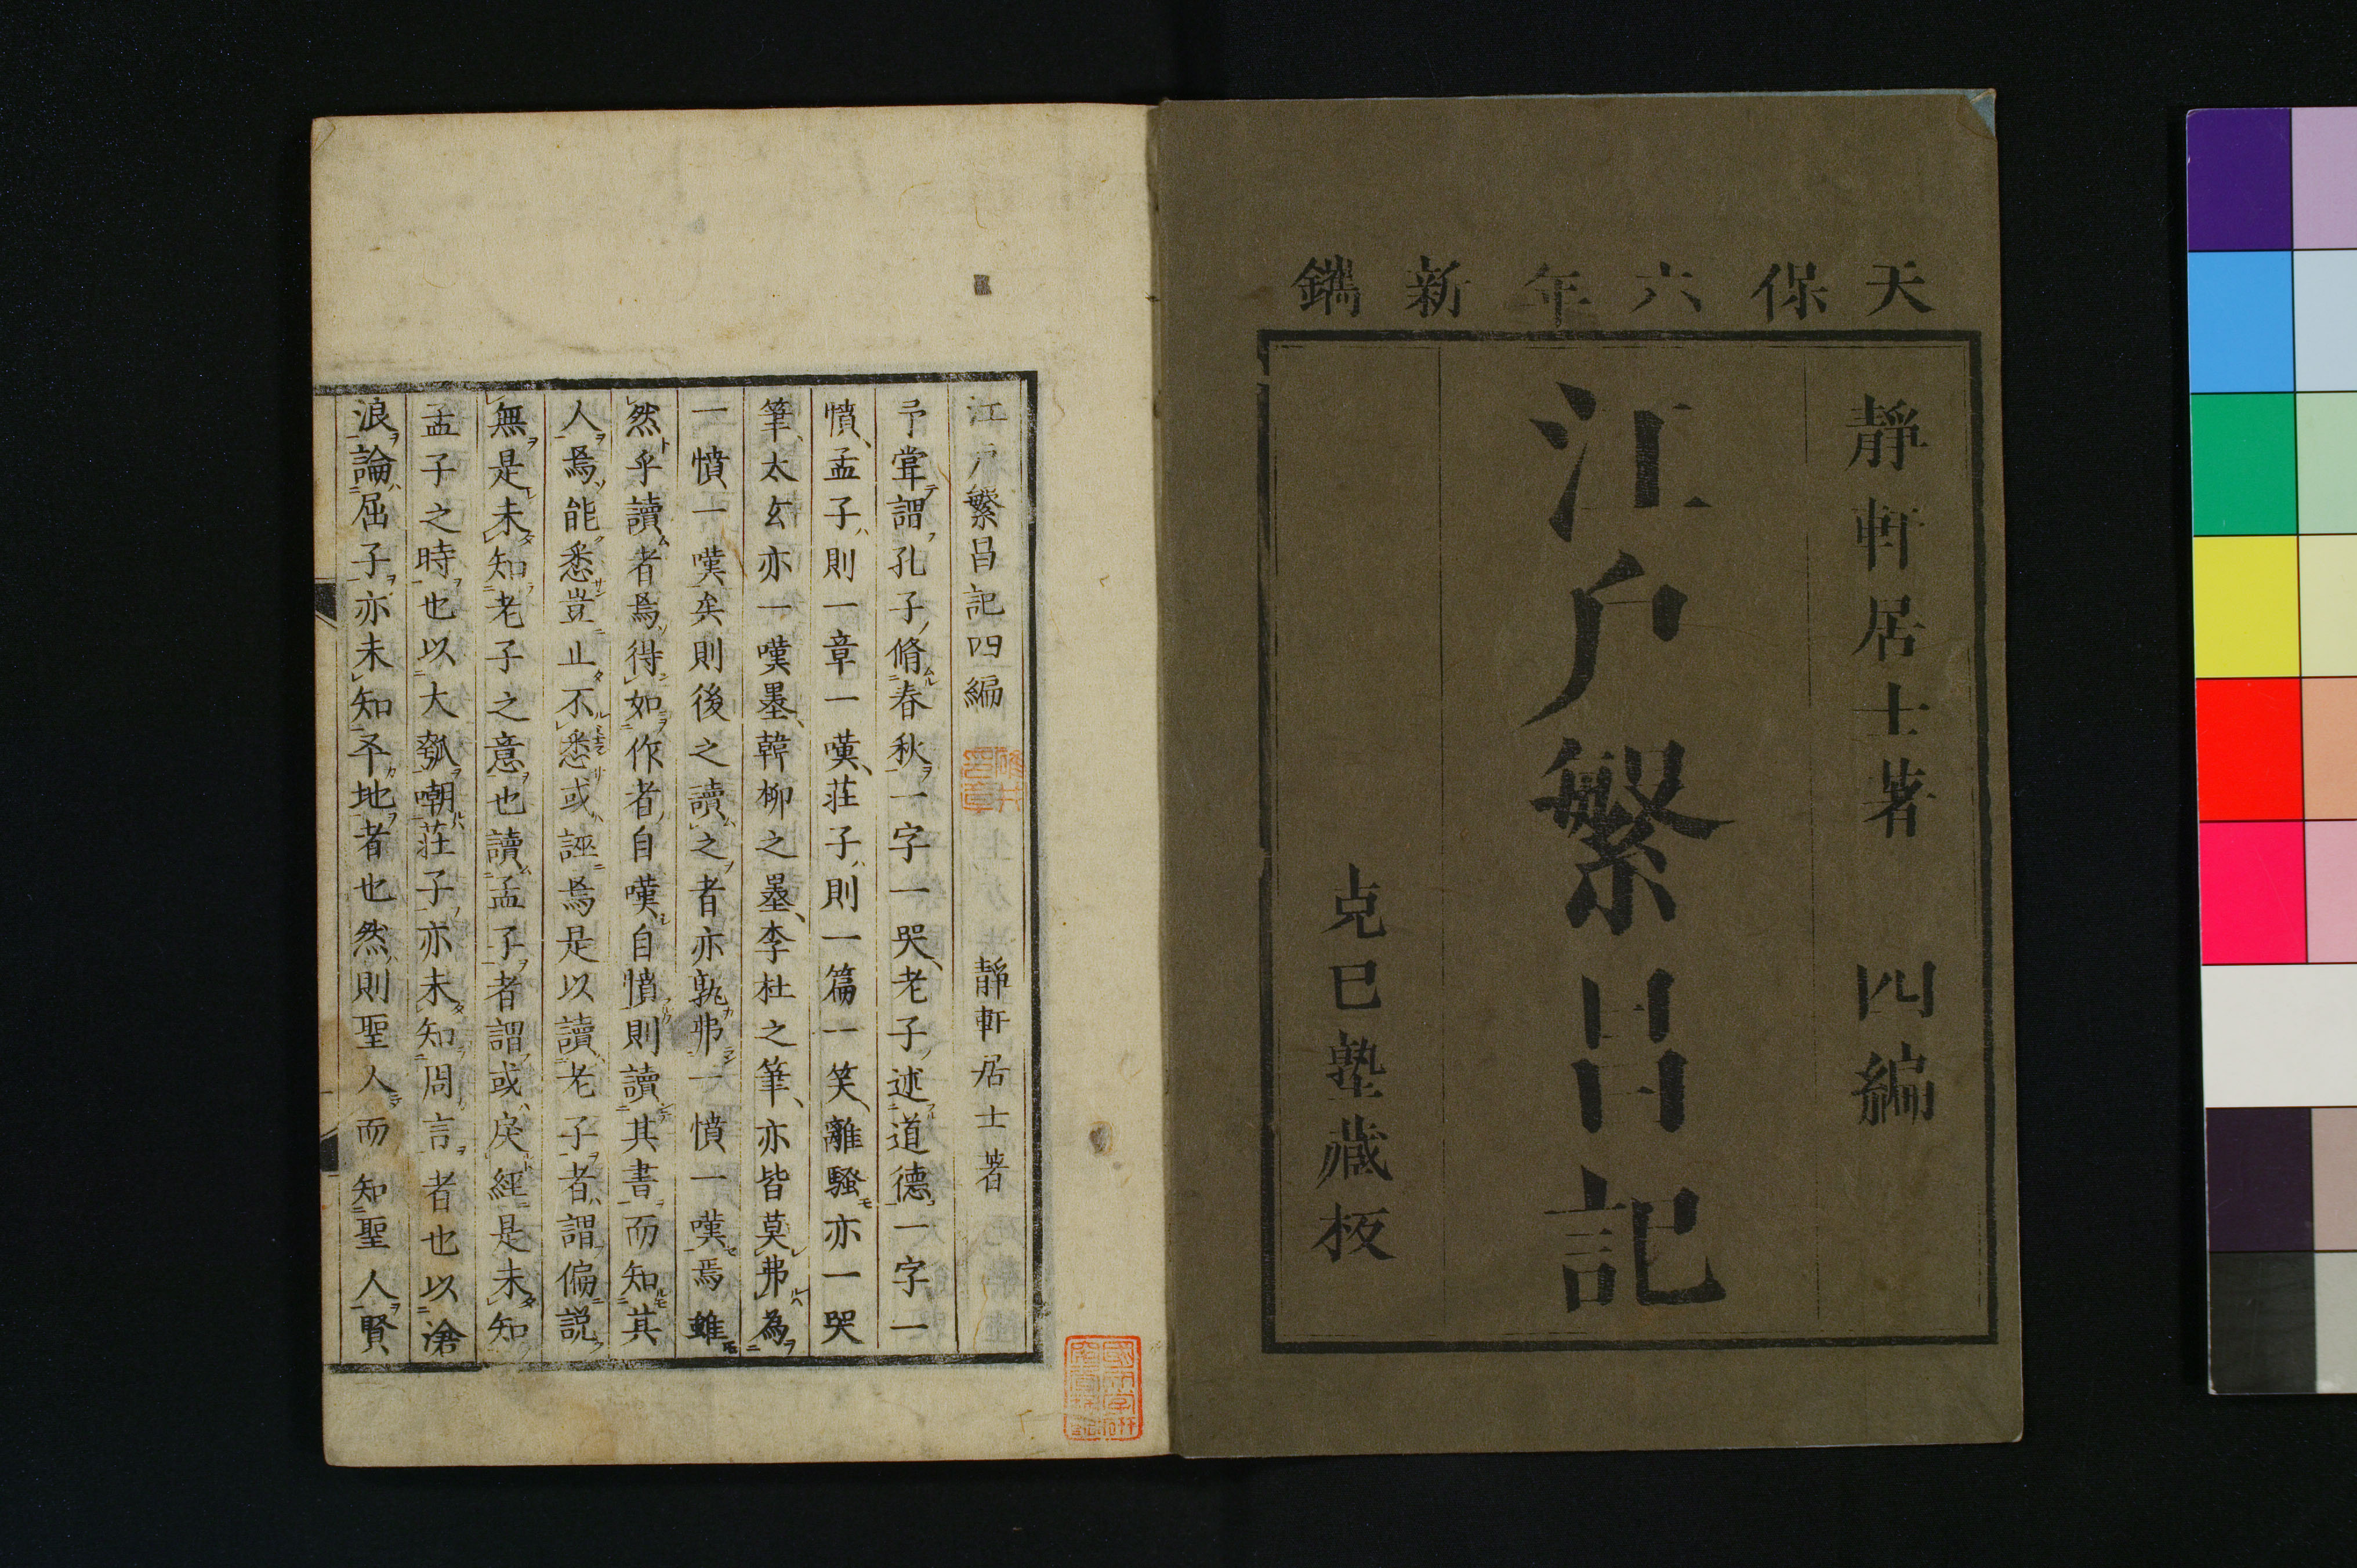 天保六年新鐫
靜軒居士著　四編
江戶繁昌記
克巳塾藏板
江戶繁昌記四編
靜軒居士著
予甞謂孔子脩春秋一字一哭、老子述道德一字一
憤、孟子則一章一嘆、莊子則一篇一笑、離騷亦一哭
筆、太玄亦一嘆墨、韓柳之墨、李杜之筆、亦皆莫弗為
一憤、一嘆矣則後之讀之者亦孰弗一憤一嘆焉雖
然乎讀者焉得如作者自嘆自憤則讀其書而知其
人焉能悉豈止不悉或誣焉是以讀老子者謂偏說
無是未知老子之意也讀孟子者謂或戾經是未知
孟子之時也以大瓠嘲莊子亦未知周言者也以滄
浪論屈子亦未知平地者也然則聖人而知聖人賢